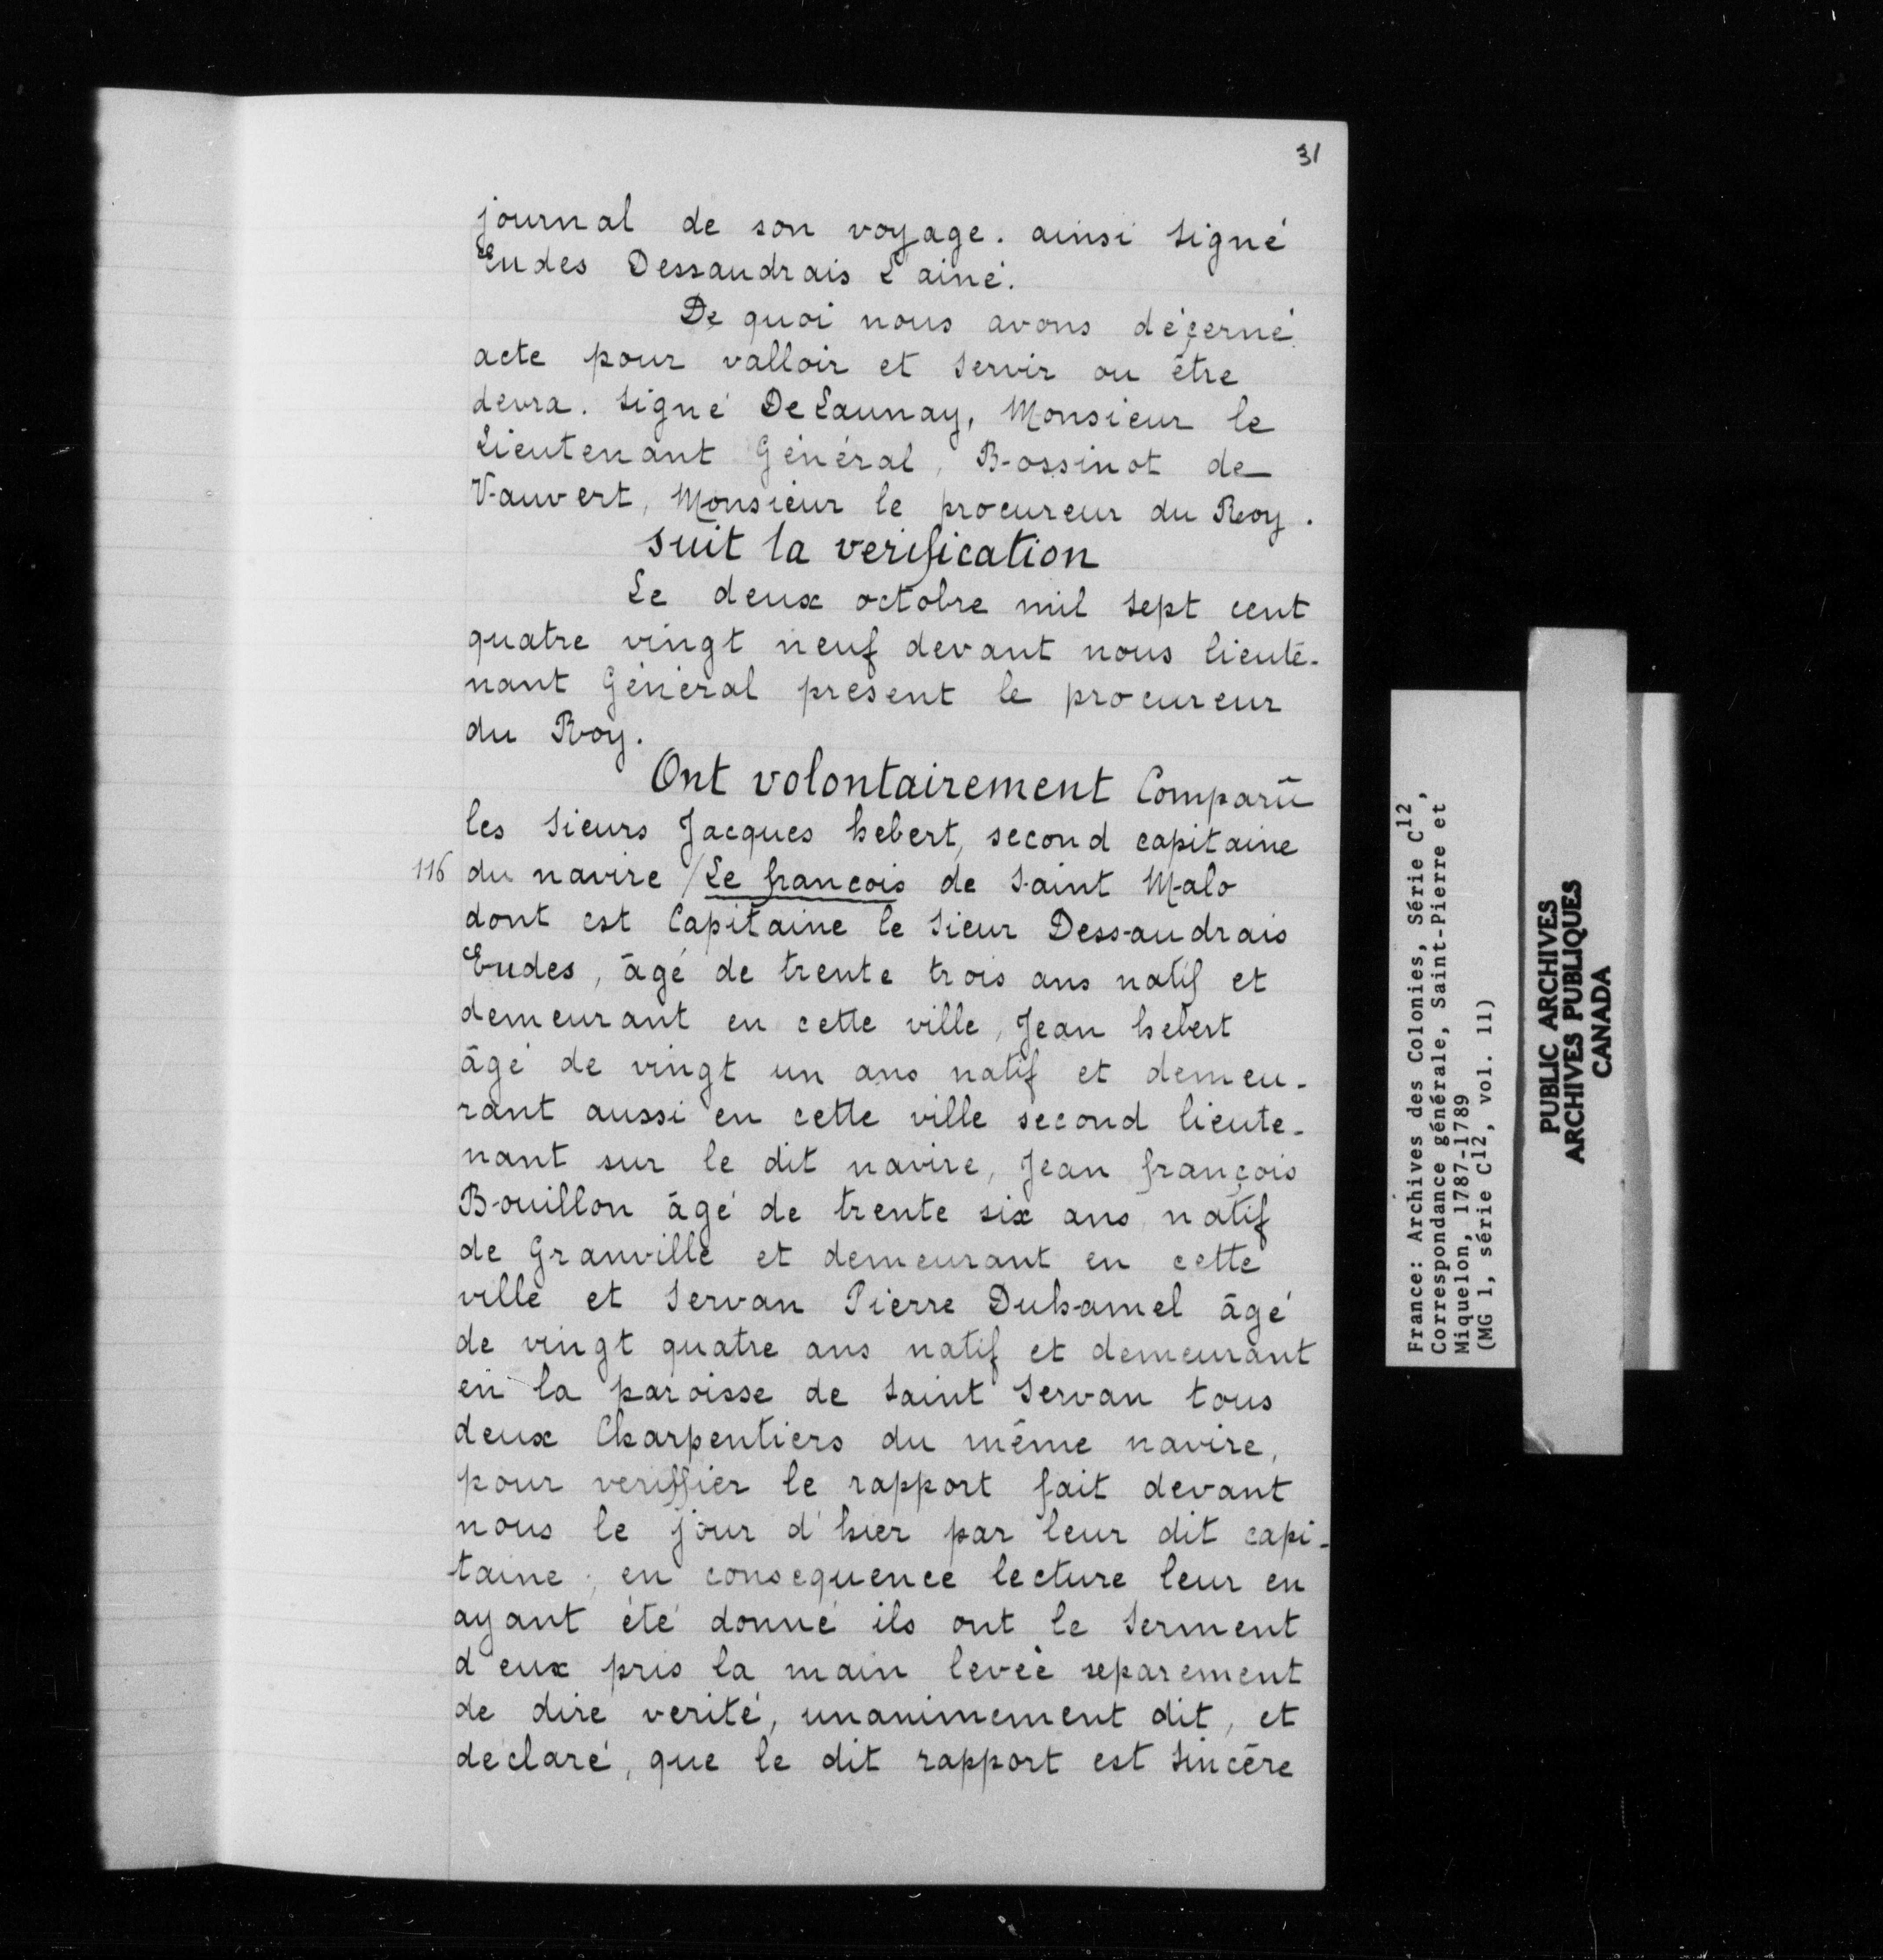 31
journal de son voyage. ainsi signé
Eudes Dessaudrais L'ainé.
De quoi nous avons déçerné
acte pour valloir et servir ou être
devra. signé De Launay, Monsieur le
Lieutenant Général, Bossinot de
Vauvert, Monsieur le procureur du Roy.
suit la verification
Le deux octobre mil sept cent
quatre vingt neuf devant nous lieute-
nant Général présent le procureur
du Roy.
Ont volontairement Comparû
les sieurs Jacques hebert, second capitaine
116 du navire /Le francois de Saint Malo
dont est Capitaine le sieur Dessaudrais
Eudes, âgé de trente trois ans natif et
demeurant en cette ville, Jean hebert
âgé de vingt un ans natif et demeu-
rant aussi en cette ville second lieute-
nant sur le dit navire, Jean françois
Bouillon âgé de trente six ans natif
de Granville et demeurant en cette
ville et Servan Pierre Duhamel âgé
de vingt quatre ans natif et demeurant
en la paroisse de Saint Servan tous
deux Charpentiers du même navire,
pour veriffier le rapport fait devant
nous le jour d'hier par leur dit capi-
taine; en consequence lecture leur en
ayant été donné ils ont le serment
d'eux pris la main levée separement
de dire verité, unanimement dit, et
declaré, que le dit rapport est sincère
France: Archives des Colonies, Série C12,
Correspondance générale, Saint-Pierre et
Miquelon, 1787-1789
(MG 1, série C12, vol. 11)
PUBLIC ARCHIVES
ARCHIVES PUBLIQUES
CANADA